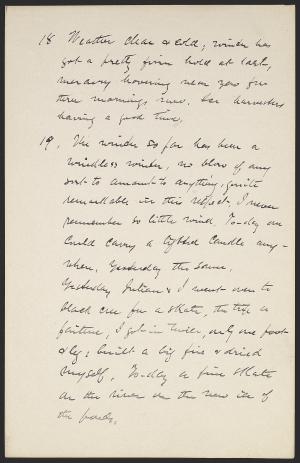 18 Weather clear & cold; winter has
got a pretty firm hold at last,
mercury hovering near zero for
three mornings now. Ice harvesters
having a good time.
19. The winter so far has been a
windless winter, no blow of any
sort to amount to anything, quite
remarkable in this respect. I never
remember so little wind. To-day one
could carry a lighted candle any-
where. Yesterday the same.
Yesterday Julian & I went over to
black creek for a skate, the trip a
failure, I got in water, only one foot
& leg; built a big fire & dried
myself. To-day a fine skate
on the river on the new ice of
the pools.